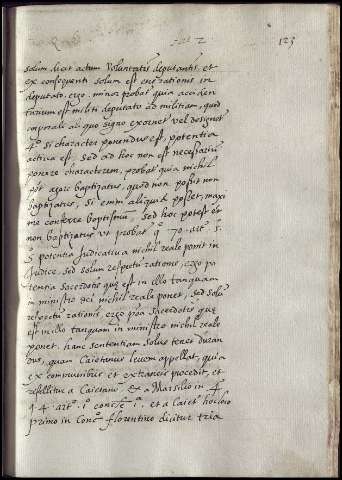 art. 2 123
solum dicit actum voluntatis deputantis, et
ex consequenti solum est ens rationis in
deputato, ergo. minor probat quia acciden
tarium est militi deputato ad militiam, quod
corporali aliquo signo exornet vel designet
4º si character ponendus est, potentia
activa est, sed ad hoc non est necessariũ
ponere characterem, probat quia nichil
pot agere baptizatus, quod non possit non
baptizatus, si enim aliquid posset, maxi
me conferre baptismũ, sed hoc potest et
non baptizatus ut probat q. 70. art. 5.
5 potentia Judicativa nichil reale ponit in
Judice, sed solum respectũ rationis, ergo po
tentia sacerdotis quę est in illo tanquam
in ministro dei nichil reale ponet, sed solũ
respectũ rationis, ergo poã sacerdotis quę
est in illo tanquam in ministro nichil reale
ponet. hanc sententiam solus tenet duran
dus, quam Caietanus levem appellat, quia
ex communibus et extraneis procedit, et
refellitur a Caietano et a Marsilio in 4
q. 4. artº. 1º concłe 1ª. et a Caietº hoc loco
primo in Concº florentino dicitur tria